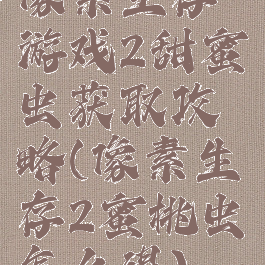 像素生存
游戏2甜蜜
虫获取攻
略(像素生
存2蜜桃虫
怎么得)